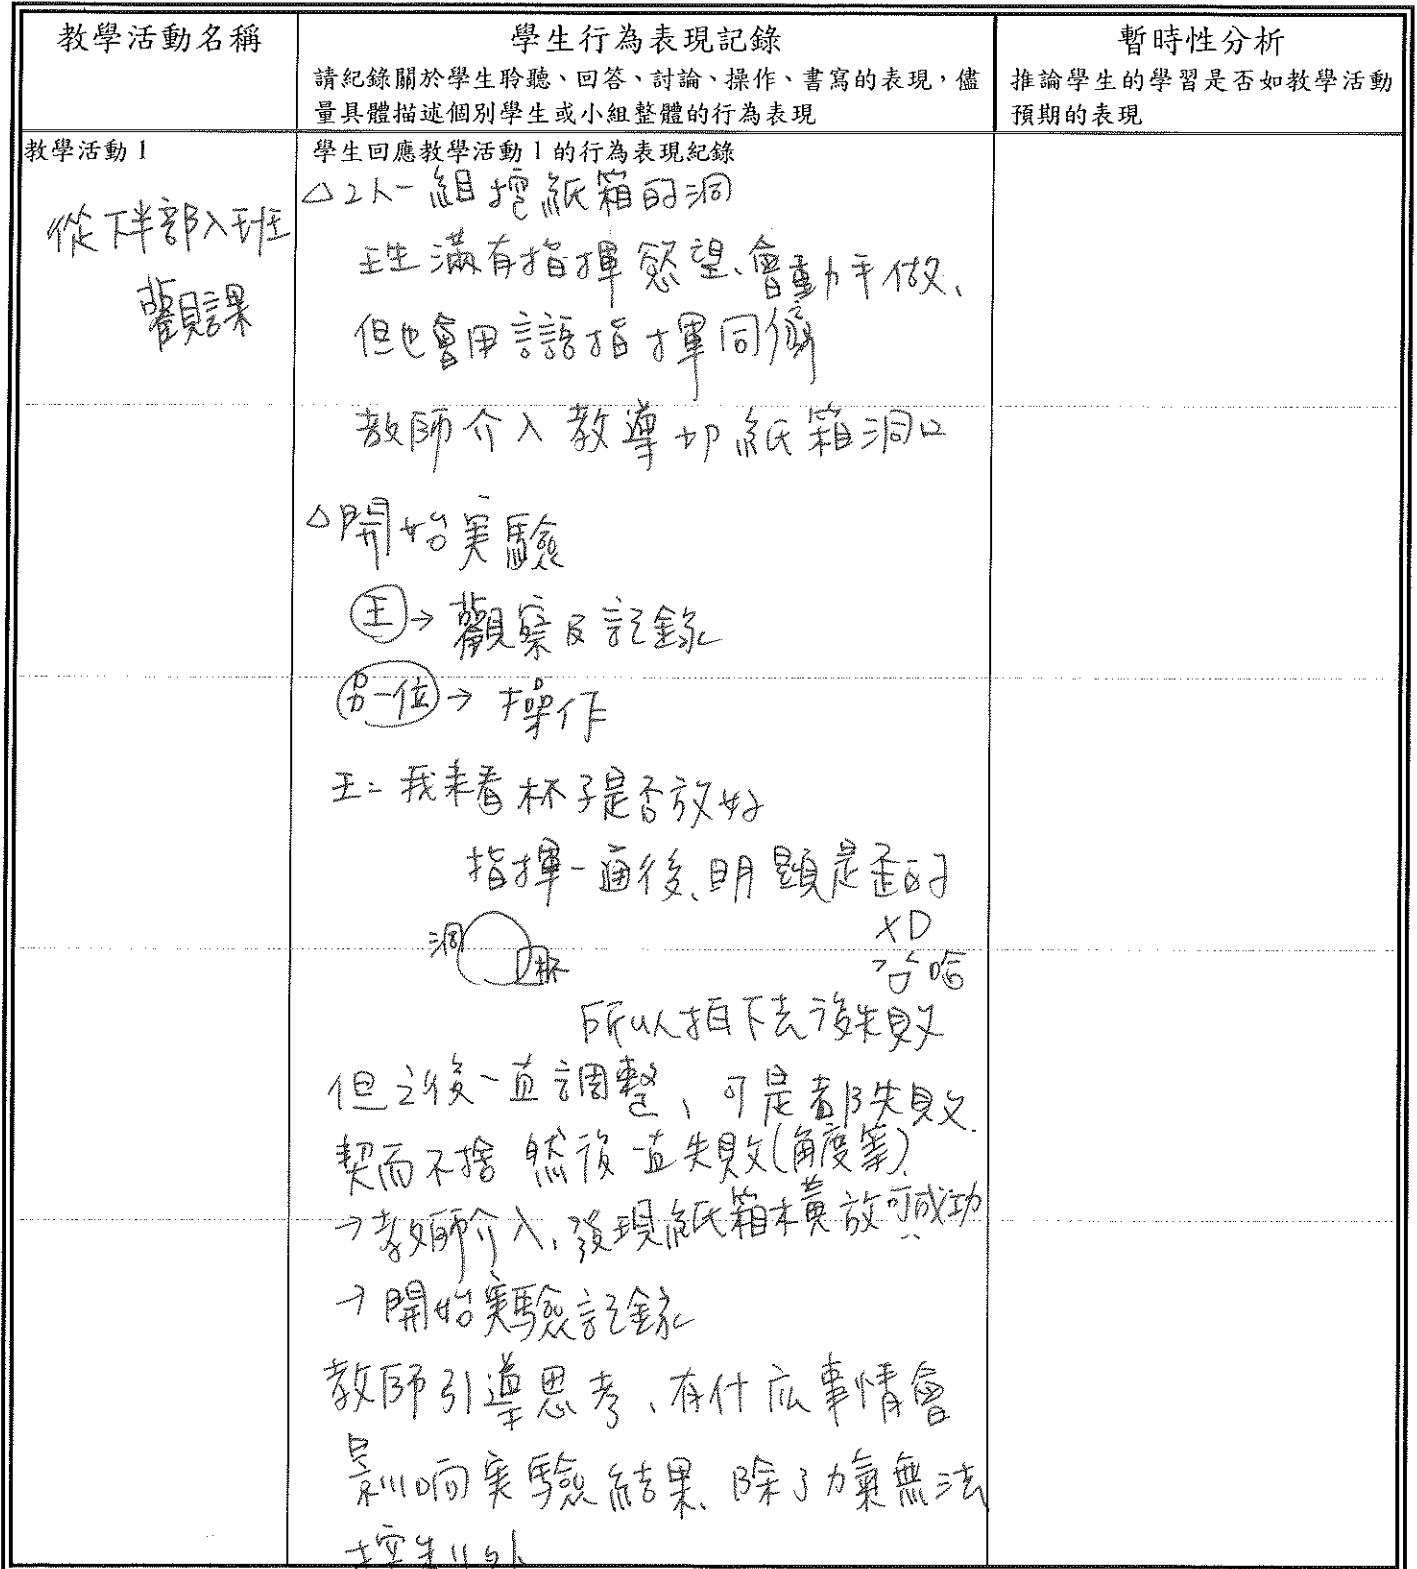 教學活動名稱
學生行為表現記錄
請紀錄關於學生聆聽、回答、討論、操作、書寫的表現，儘
量具體描述個別學生或小組整體的行為表現
暫時性分析
推論學生的學習是否如教學活動
預期的表現
教學活動1
從下半部入班
觀課
學生回應教學活動1的行為表現紀錄
△2人一組挖紙箱的洞
王生滿有指揮慾望、會動手做、
但也會用言語指揮同儕
教師介入教導切紙箱洞口
△開始实驗
王→觀察及記錄
另一位→操作
王：我來看杯子是否放好
指揮一通後、明顯是歪的
XD
哈哈
洞
杯
所以拍下去後失敗
但之後一直調整、可是都失敗.
契而不捨 然後一直失敗(角度等)
→教師介入、發現紙箱橫放可成功
→開始实驗記錄
教師引導思考、有什庅事情會
影响实驗結果、除了力氣無法
控制以外